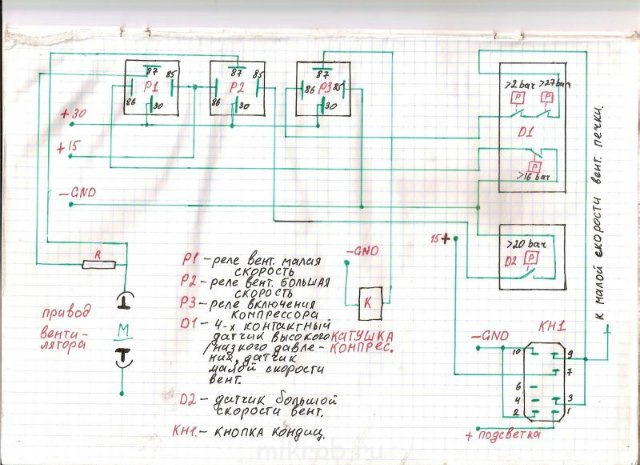 87
85
P1
86
30
87
85
P2
86
30
87
P3
85
86
30
+30
+15
-GND
>2 бач
>27 бач
P
P
D1
P
>16 бач
>20 бач
D2
P
15+
К малой скорости вент. печки.
R
привод
венти-
лятора
M
-GND
K
КАТУШКА
КОНПРЕС.
P1 - реле вент. малая
скорость
P2 - реле вент. большая
скорость
P3 - реле включения
компрессора
D1 - 4-х контактный
датчик высокого
/низкого давле-
ния, датчик
малой скорости
вент.
D2 - датчик большой
скорости вент.
КН1 - кнопка кондиц.
-GND
КН1
10
9
7
6
4
3
2
1
+ подсветка